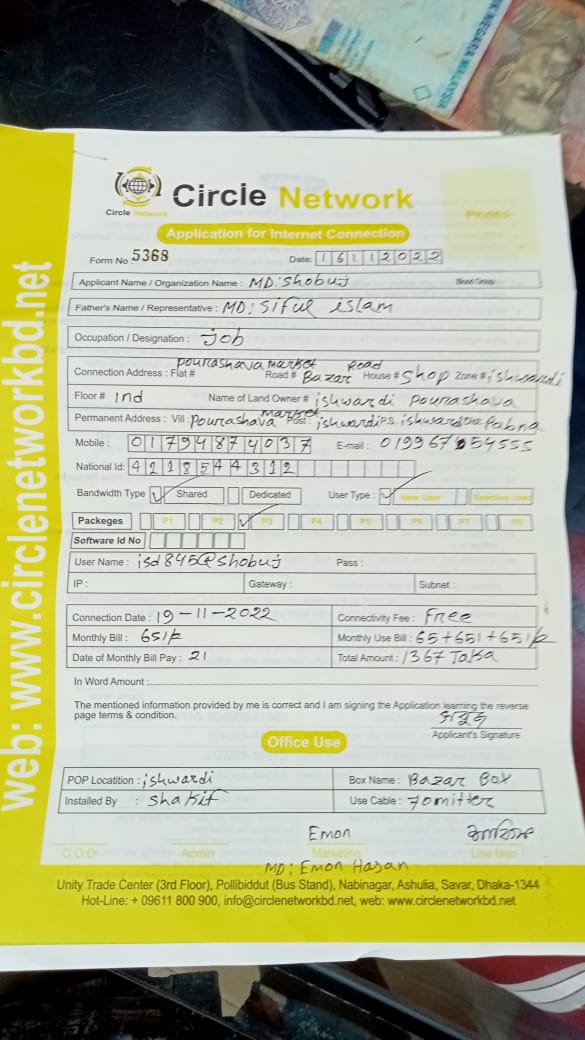 NEGARA MALAYSIA
web: www.circlenetworkbd.net
Circle Network
Circle Network
Photo
Application for Internet Connection
Form No 5368 Date: 16112022
Applicant Name / Organization Name : MD: Shobuj Blood Group
Father's Name / Representative : MD: Siful islam
Occupation / Designation : job
Connection Address : Flat # pourashava market Road # Bazar Road House # Shop Zone # ishwardi
Floor # 1nd Name of Land Owner # ishwardi pourashava
Permanent Address : Vill : pourashava market Post : ishwardi P.S. ishwardi Dist: Pabna
Mobile : 01794874037 E-mail : 01996754555
National Id: 4218544312
Bandwidth Type Shared Dedicated User Type : New User Reactive User
Packeges P1 P2 P3 P4 P5 P6 P7 P8
Software Id No
User Name : isd845@shobuj Pass :
IP : Gateway : Subnet :
Connection Date : 19-11-2022 Connectivity Fee : Free
Monthly Bill : 651/k Monthly Use Bill : 65+651+651/k
Date of Monthly Bill Pay : 21 Total Amount : 1367 Taka
In Word Amount :
The mentioned information provided by me is correct and I am signing the Application learning the reverse
page terms & condition.
সবুজ
Applicant's Signature
Office Use
POP Locatition : ishwardi Box Name : Bazar Box
Installed By : Shakif Use Cable : 70mitter
Emon
C.O.O Admin Marketing Line Man
MD: Emon Hasan
Unity Trade Center (3rd Floor), Pollibiddut (Bus Stand), Nabinagar, Ashulia, Savar, Dhaka-1344
Hot-Line: + 09611 800 900, info@circlenetworkbd.net, web: www.circlenetworkbd.net